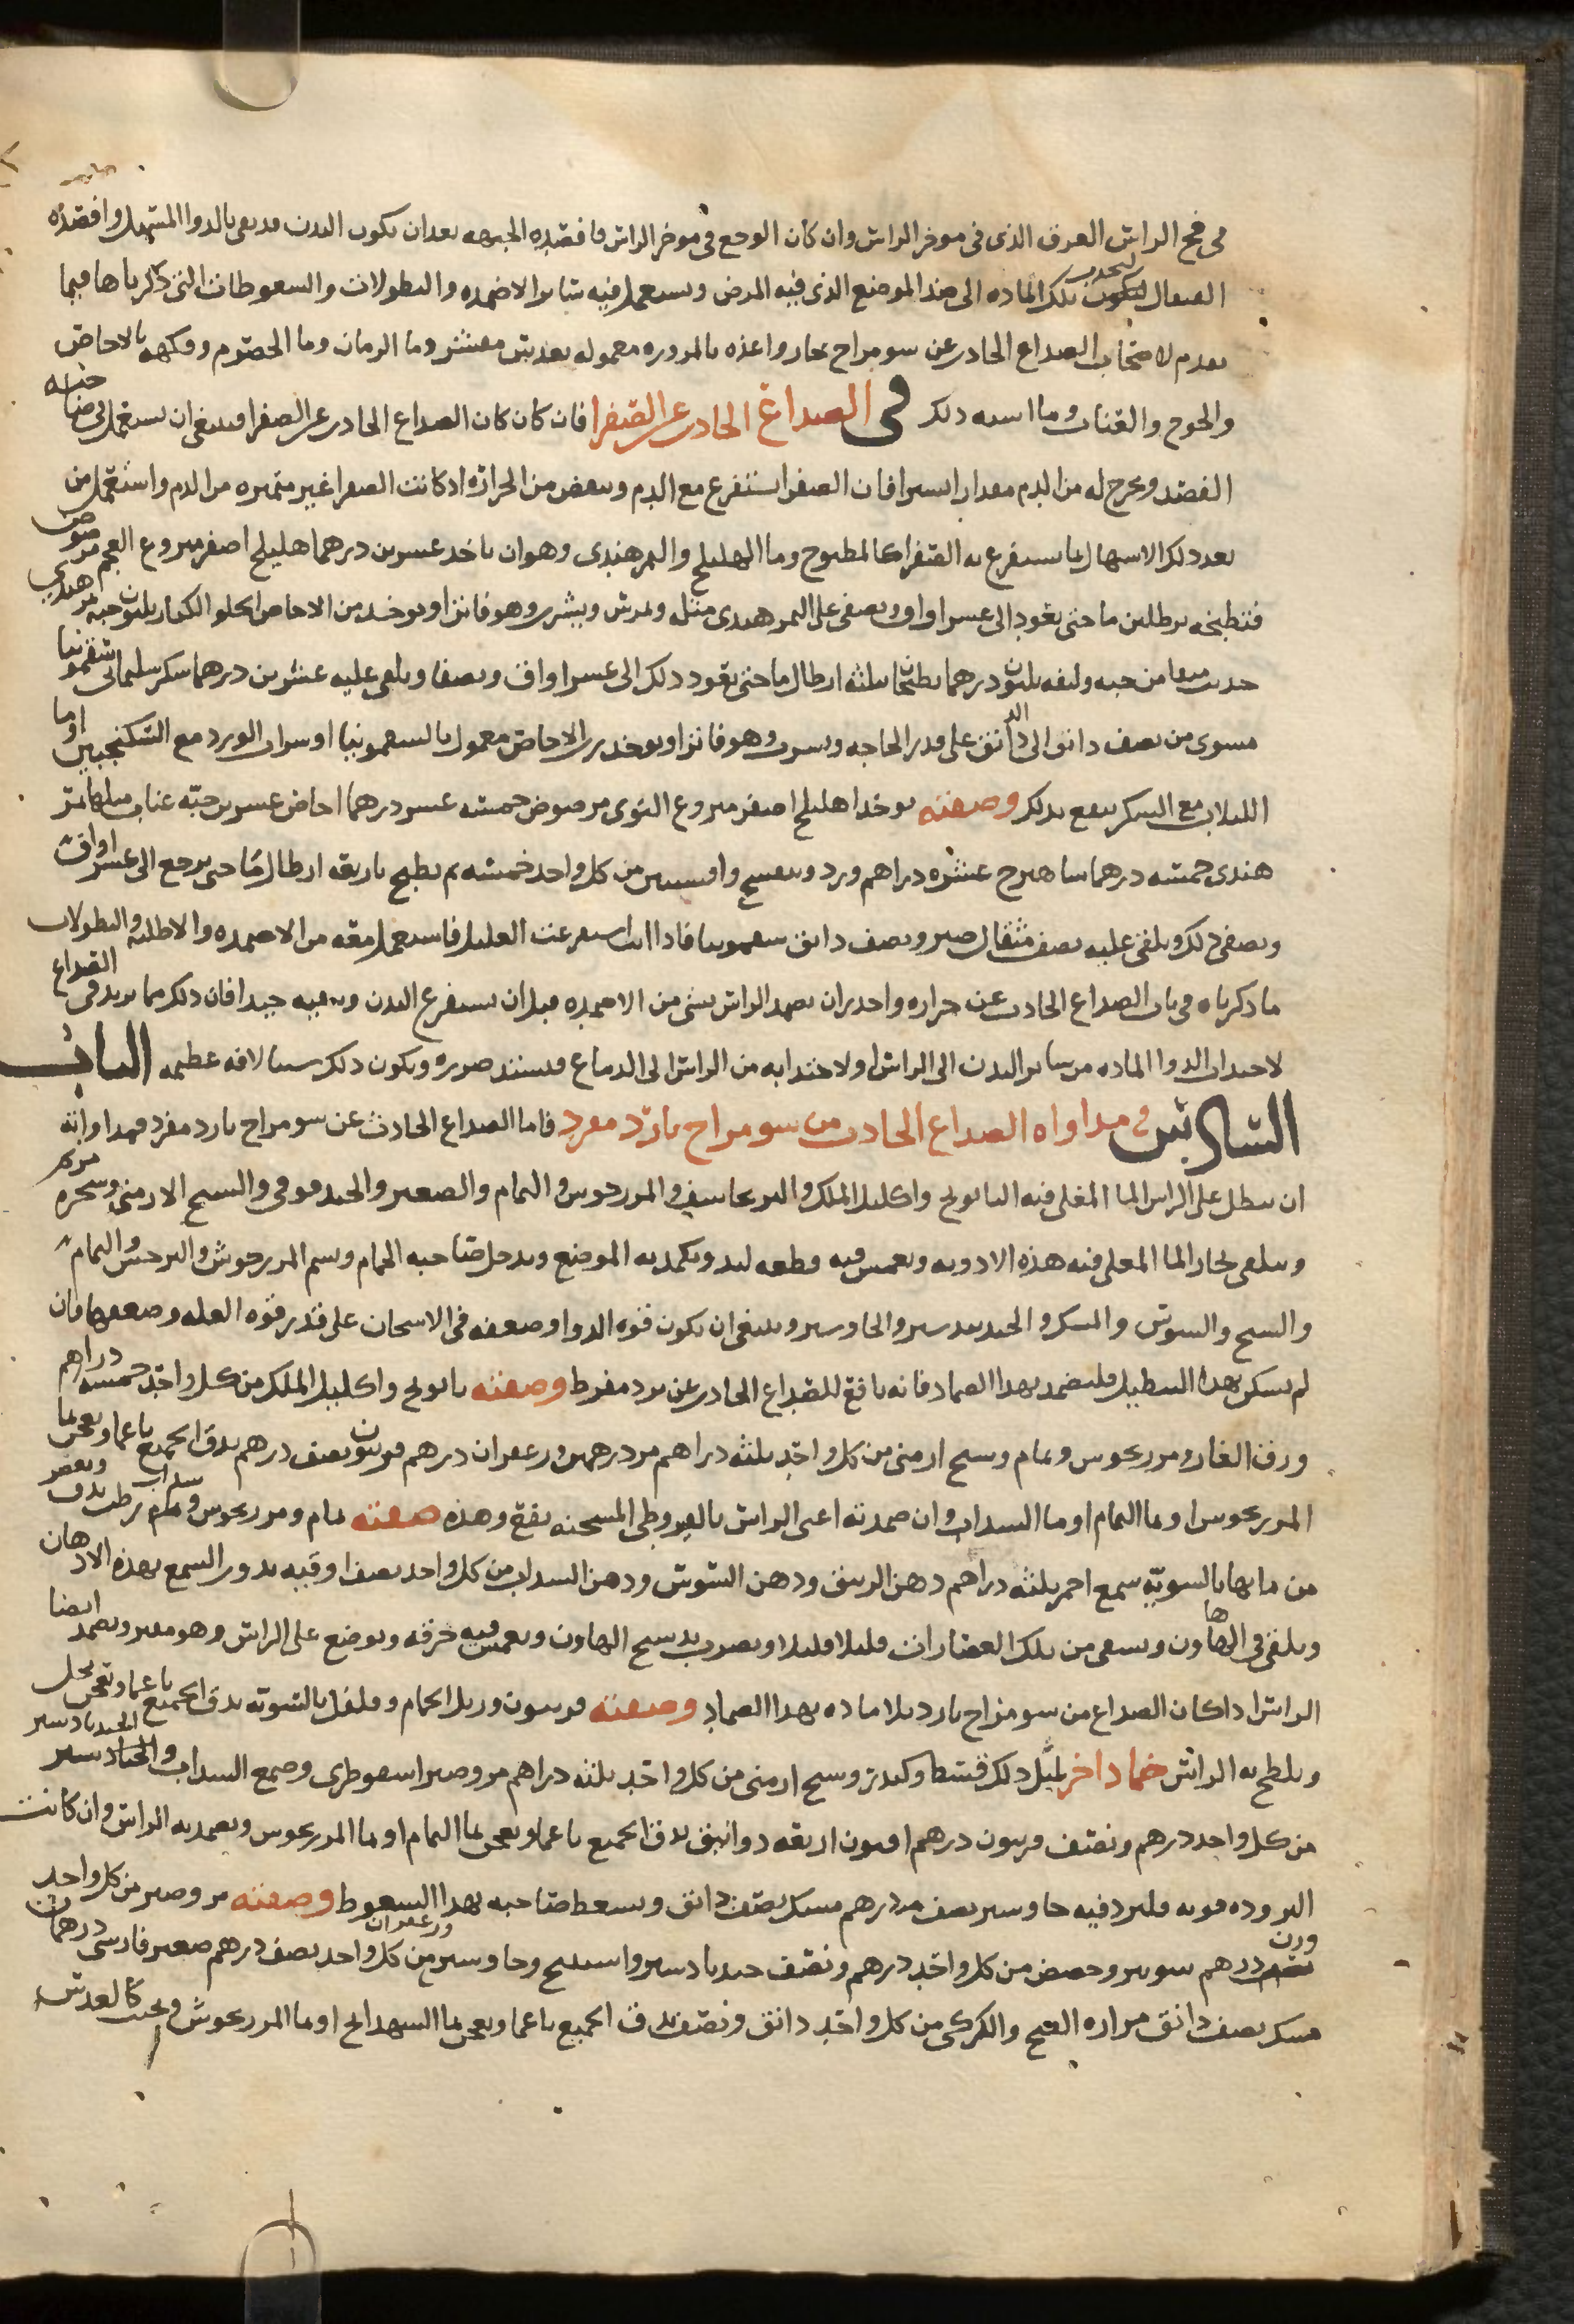 في فتح الراس العرق الذي في موخر الراس وان كان الوجع في موخر الراس فافصده الجبهه بعد ان يكون البدن قد نقي بالدوا المسهل وافصده
القيفال ليجذب تلك الماده الى ضد الموضع الذي فيه المرض ويستعمل فيه سائر الاضمده والنطولات والسعوطات التي ذكرناها فيما
تقدم لاصحاب الصداع الحادث عن سو مزاج حار واغذه بالمزوره معموله بعدس مقشر وما الرمان وما الحصرم وفكهه بالاجاص
والخوخ والقثا وما اشبه ذلك في الصداع الحادث عن الصفرا فان كان كان الصداع الحادث عن الصفرا فينبغي ان يستعمل في صاحبه
الفصد ويخرج له من الدم مقدار اليسير فان الصفرا تستفرغ مع الدم وينقص من الحراره اذ كانت الصفرا غير متميزه من الدم واستعمل من
بعد ذلك الاسهال بما يستفرغ به الصفرا كالمطبوخ وما الهليلج والتمر هندي وهو ان ياخذ عشرين درهما هليلج اصفر منزوع العجم مرضوض
فتطبخه برطلين ما حتى يعود الى عشر اواق ويصفى على التمر هندي مثله ويمرس ويشرب وهو فاتر او يوخذ من الاجاص الحلو الكبار ثلثون حبه تمر هندي
حديث منقا من حبه وليفه ثلثون درهما يطبخ بثلثه ارطال ما حتى يعود ذلك الى عشر اواق ويصفا ويلقى عليه عشرين درهما سكر سليماني سقمونيا
مشوي من نصف دانق الى الدانق على قدر الحاجه ويشرب وهو فاترا ويوخذ رب الاجاص معمول بالسقمونيا او شراب الورد مع السكنجبين او ما
اللبلاب مع السكر ينفع بذلك وصفته يوخذ اهليلج اصفر منزوع النوى مرضوض خمسه عشر درهما اجاص عشرين حبه عناب مثلها تمر
هندي خمسه درهما شاهترج عشره دراهم ورد وبنفسج وافسنتين من كل واحد خمسه ثم يطبخ باربعه ارطال ما حتى يرجع الى عشر اواق
ويصفى ذلك ويلقى عليه نصف مثقال صبر ونصف دانق سقمونيا فاذا انت استفرغت العليل فاستعمل معه من الاضمده والاطليه والنطولات
ما ذكرناه في باب الصداع الحادث عن حراره واحذر ان تضمد الراس بشي من الاضمده قبل ان تستفرغ البدن وتنقيه جيدا فان ذلك مما يزيد في الصداع
لاجتذاب الدوا الماده من سائر البدن الى الراس اولا اجتذابه من الراس الى الدماغ فيشتد ضرره ويكون ذلك سببا لافه عظيمه الباب
السادس في مداواه الصداع الحادث من سو مزاج بارد مفرد فاما الصداع الحادث عن سو مزاج بارد مفرد فمداواته
ان ينطل على الراس الما المغلى فيه البابونج واكليل الملك والبرنجاسف والمرزنجوش والنمام والصعتر والحندقوقى والشيح الارمني وشجره مريم
ويتلقى بخار الما المغلى فيه هذه الادويه ويغمس فيه قطعه لبد ويكمد به الموضع ويدخل صاحبه الحمام ويشم المرزنجوش والنرجس والنمام
والشيح والسوسن والمسك والجندبيدستر والجاوشير وينبغي ان يكون قوه الدوا وضعفه في الاسخان على قدر قوه العله وضعفها فان
لم يسكن بهذا التنطيل فليضمد بهذا الضماد فانه نافع للصداع الحادث عن برد مفرط وصفته بابونج واكليل الملك من كل واحد خمسه دراهم
ورق الغار ومرزنجوش ونمام وشيح ارمني من كل واحد ثلثه دراهم مر درهمين وزعفران درهم فربيون نصف درهم يدق الجميع ناعما ويعجن بما
المرزنجوش او بما النمام او ما السذاب وان ضمدته اعني الراس بالقيروطي المسخنه نفع وهذه صفته نمام ومرزنجوش وسذاب رطب يدق ويعصر
من مائها بالسويه شمع احمر ثلثه دراهم دهن الزنبق ودهن السوسن ودهن السذاب من كل واحد نصف اوقيه يذوب الشمع بهذه الادهان
ويلقى في الهاون ويسقى من تلك العصارات قليلا قليلا ويضرب بدستج الهاون ويغمس فيه خرقه ويوضع على الراس وهو مفتر ويضمد ايضا
الراس اذا كان الصداع من سو مزاج بارد بلا ماده بهذا الضماد وصفته فربيون وزبل الحمام وفلفل بالسويه يدق الجميع ناعما ويعجن بخل
ويلطخ به الراس ضماد اخر لمثل ذلك قسط وكندر وشيح ارمني من كل واحد ثلثه دراهم مر وصبر اسقوطري وصمغ السذاب والجندبادستر
من كل واحد درهم ونصف فربيون درهم افيون اربعه دوانيق يدق الجميع ناعما ويعجن بما النمام او بما المرزنجوش ويضمد به الراس وان كانت
البروده قويه فليزد فيه جاوشير نصف درهم مسك نصف دانق ويسعط صاحبه بهذا السعوط وصفته مر وصبر من كل واحد
وزن درهم شونيز وحضض من كل واحد درهم ونصف جندبادستر واسفيذاج وجاوشير وزعفران من كل واحد نصف درهم صعتر فارسي درهمان
مسك نصف دانق مراره القبج والكركي من كل واحد دانق ونصف يدق الجميع ناعما ويعجن بما الشهدانج او بما المرزنجوش ويحبب كالعدس